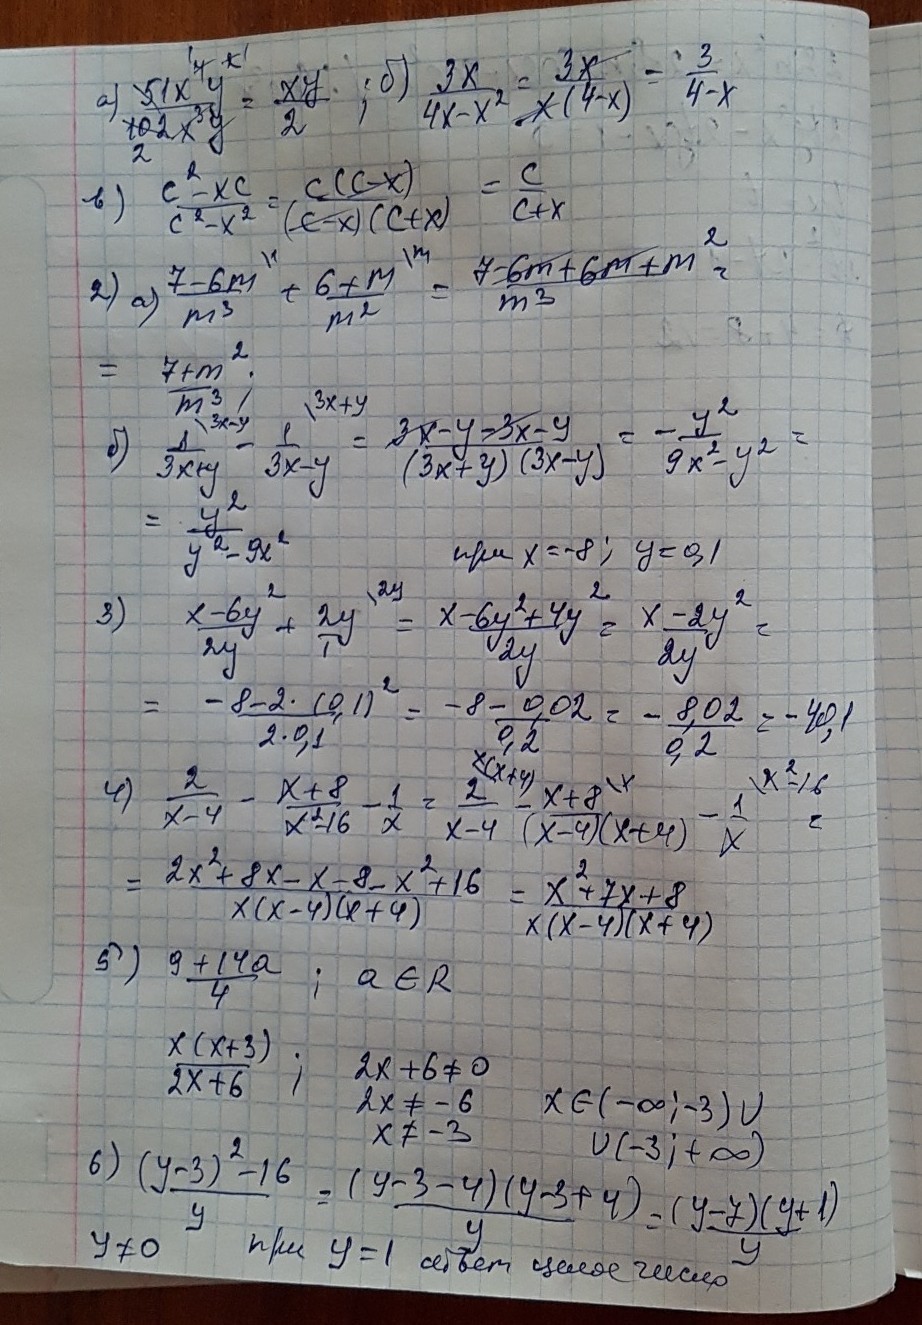 а) 51x⁴y / 102x³y = xy / 2 ; б) 3x / 4x-x² = 3x / x(4-x) = 3 / 4-x
в) c²-xc / c²-x² = c(c-x) / (c-x)(c+x) = c / c+x
2) а) 7-6m / m³ + 6+m / m² \m = 7-6m+6m+m² / m³ =
= 7+m² / m³ ;
б) 1 / 3x+y \3x-y - 1 / 3x-y \3x+y = 3x-y-3x-y / (3x+y)(3x-y) = - y² / 9x²-y² =
= y² / y²-9x²
при x=-8; y=0,1
3) x-6y² / 2y + 2y / 1 \2y = x-6y²+4y² / 2y = x-2y² / 2y =
= -8-2·(0,1)² / 2·0,1 = -8-0,02 / 0,2 = - 8,02 / 0,2 = -40,1
4) 2 / x-4 - x+8 / x²-16 - 1 / x = 2 / x-4 \x(x+4) - x+8 / (x-4)(x+4) \x - 1 / x \x²-16 =
= 2x²+8x-x-8-x²+16 / x(x-4)(x+4) = x²+7x+8 / x(x-4)(x+4)
5) 9+14a / 4 ; a∈R
x(x+3) / 2x+6 ; 2x+6≠0
2x≠-6 x∈(-∞;-3)∪
x≠-3 ∪(-3;+∞)
6) (y-3)²-16 / y = (y-3-4)(y-3+4) / y = (y-7)(y+1) / y
y≠0 при y=1 ответ целое число